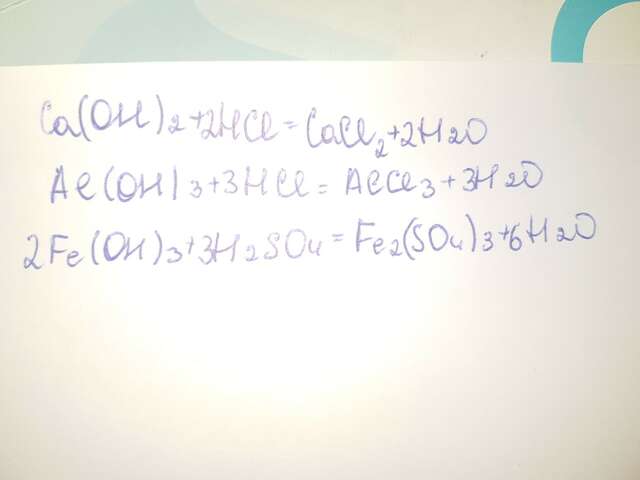 Ca(OH)2+2HCl=CaCl2+2H2O
Al(OH)3+3HCl=AlCl3+3H2O
2Fe(OH)3+3H2SO4=Fe2(SO4)3+6H2O